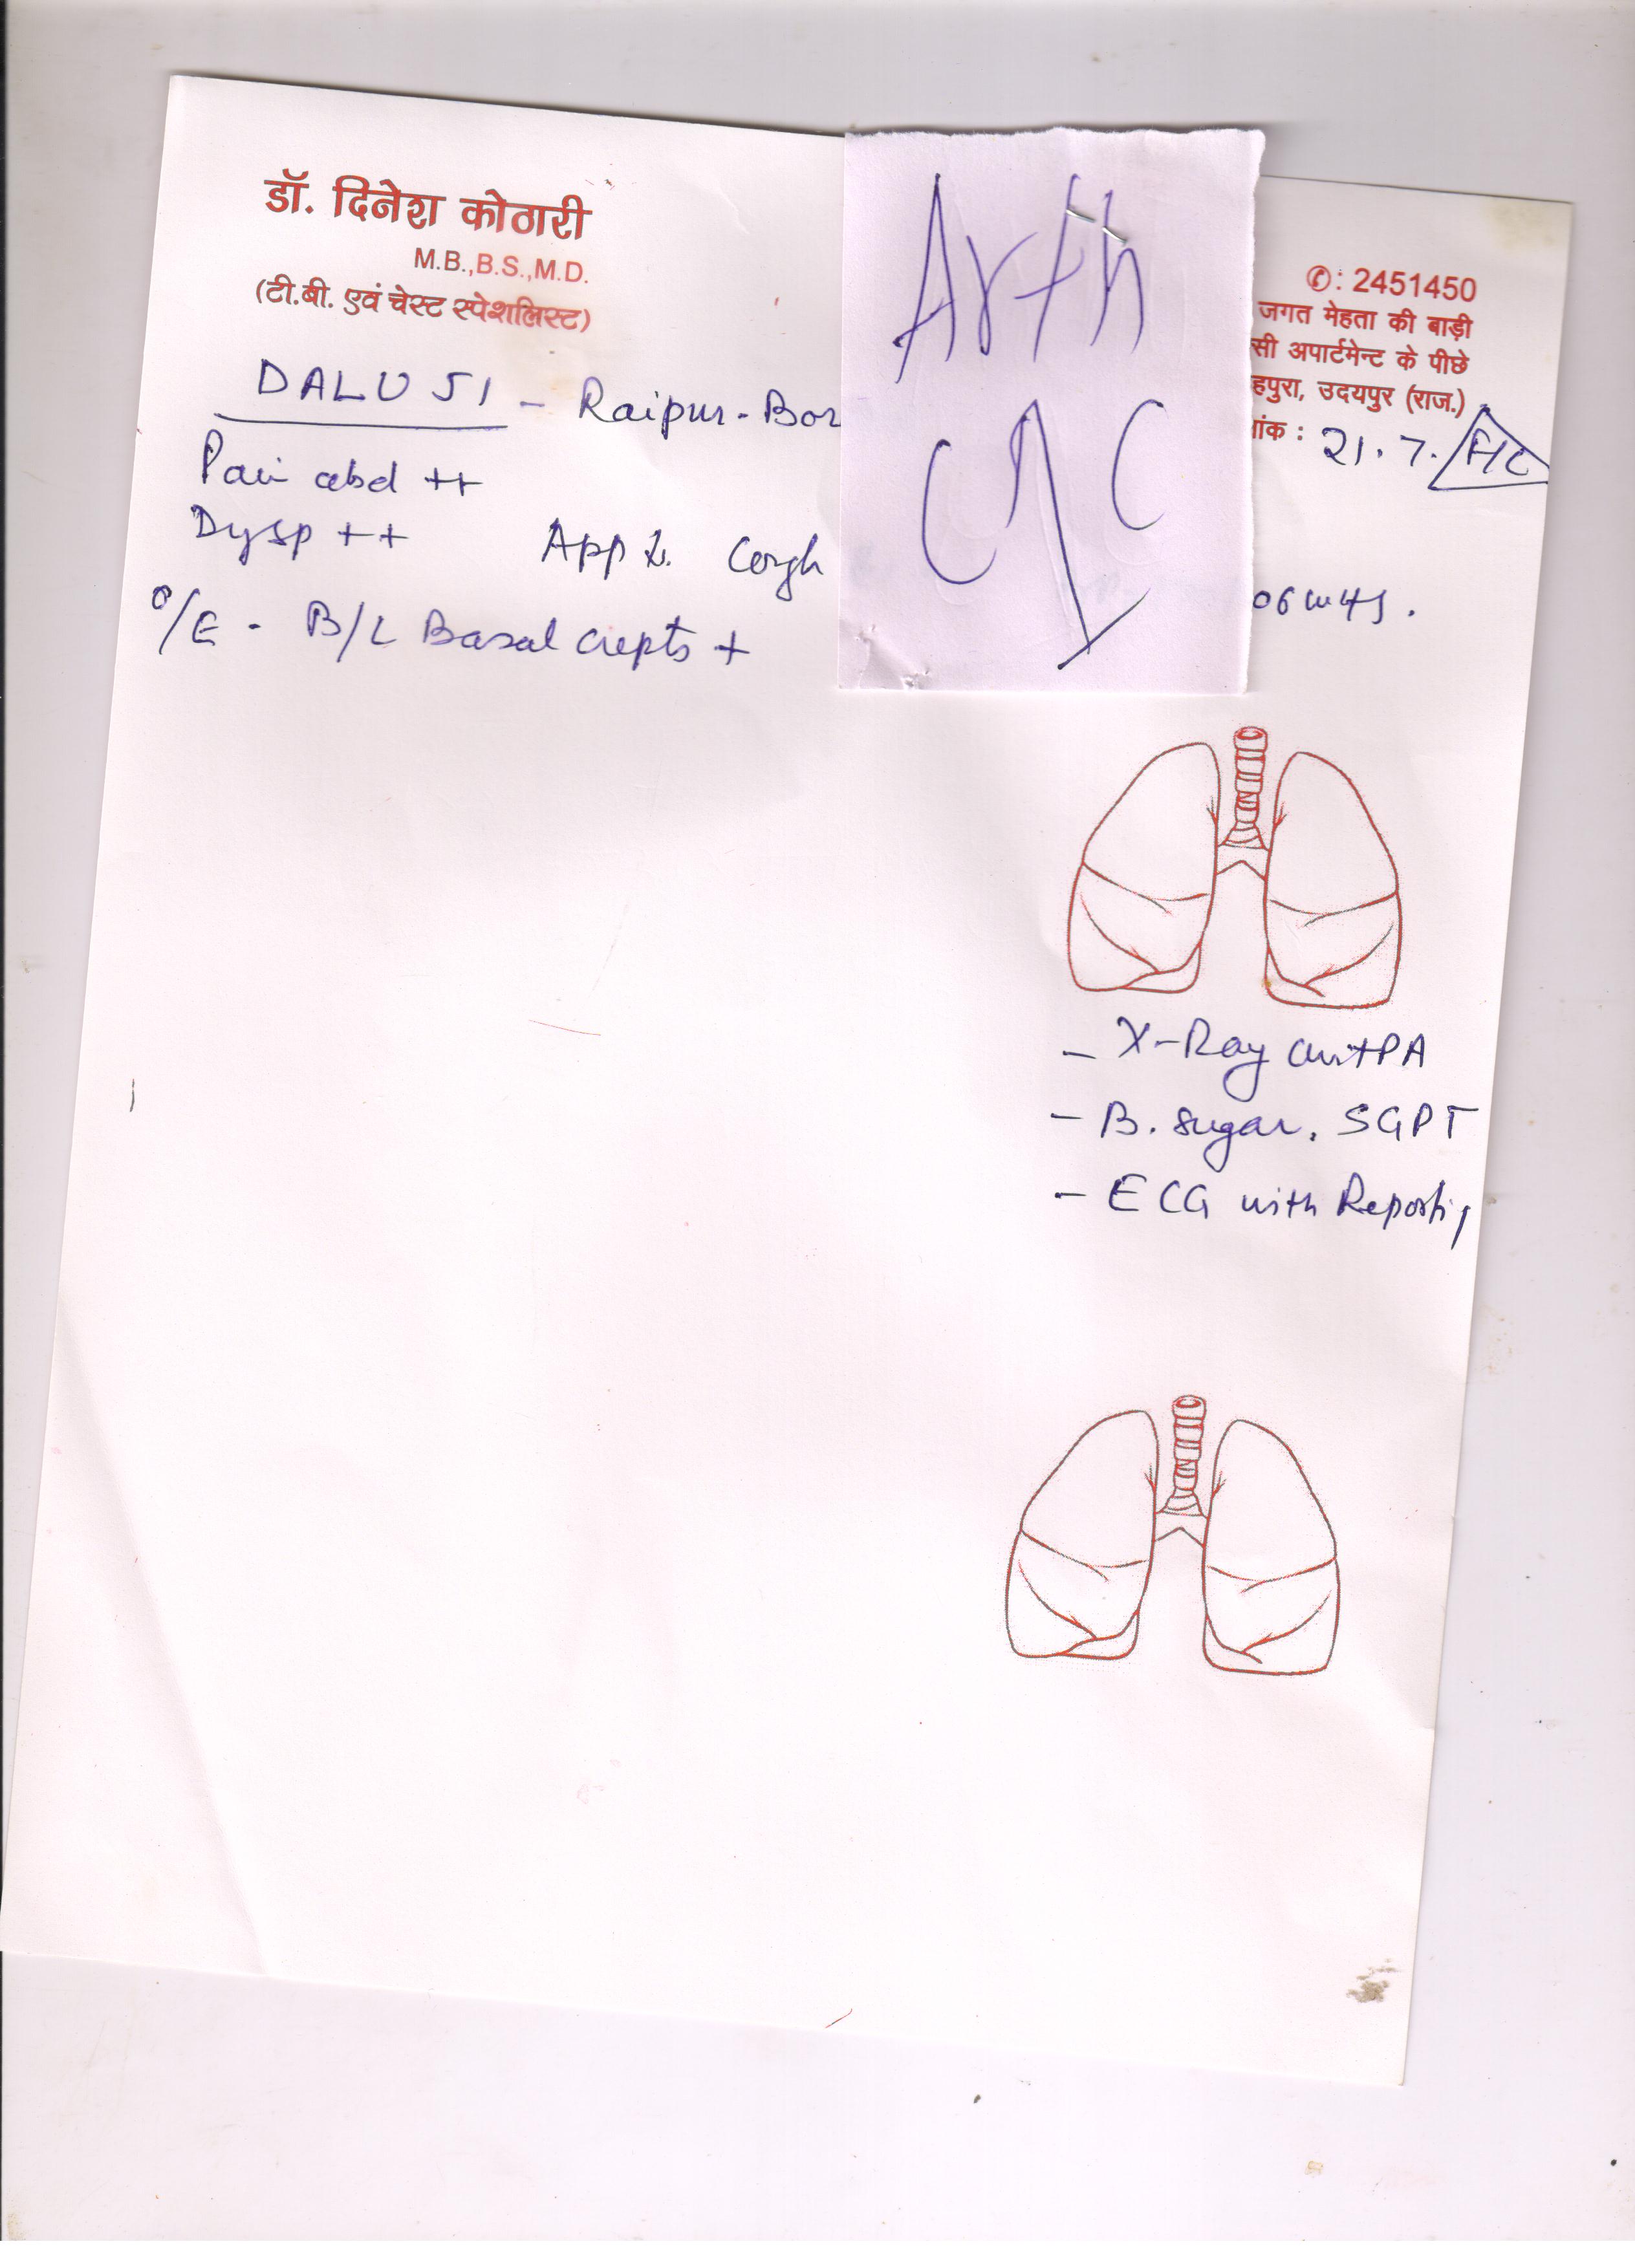 डॉ. दिनेश कोठारी
M.B.,B.S.,M.D.
(टी.बी. एवं चेस्ट स्पेशलिस्ट)
✆: 2451450
जगत मेहता की बाड़ी
सी अपार्टमेन्ट के पीछे
हपुरा, उदयपुर (राज.)
ांक : 21.7.
Arth
DALU JI - Raipur-Bor
Pain abd ++
Dysp ++ App Cough
O/E - B/L Basal crepts +
- X-Ray PA
- B. Sugar, SGPT
- ECG with Reporting